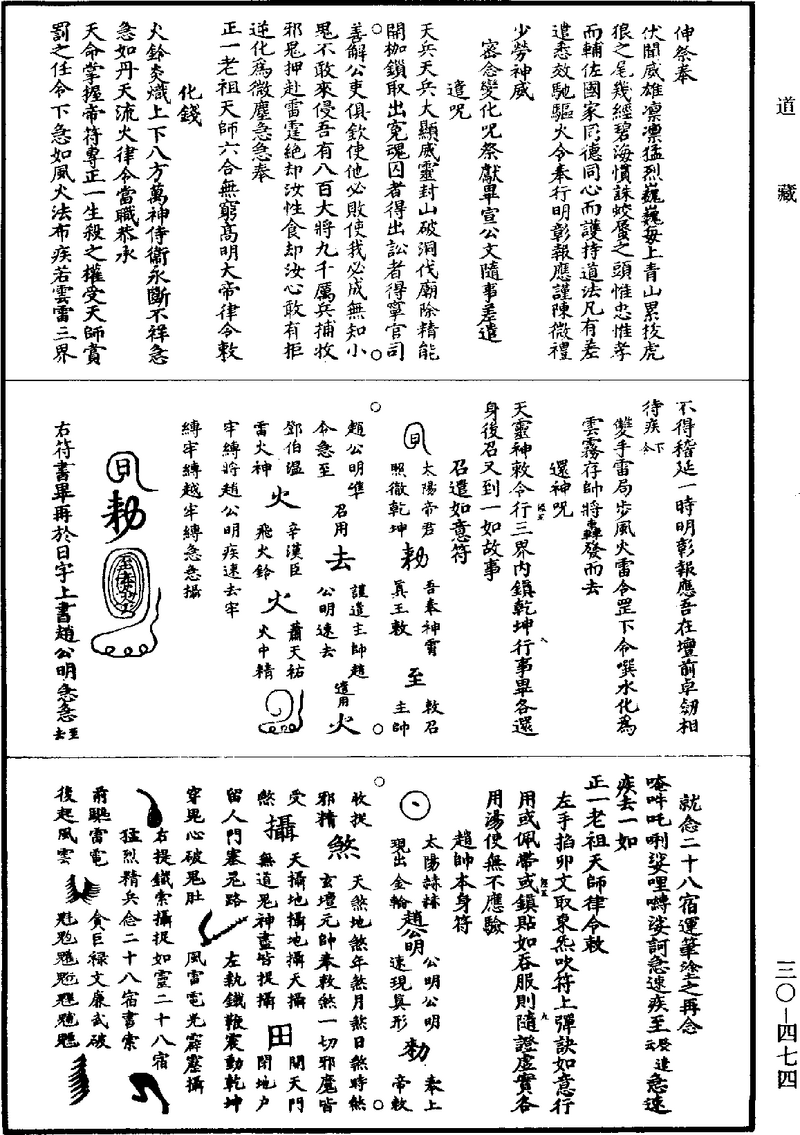 道藏
三〇—四七四
伸祭奉
伏聞威雄凛凛猛烈巍巍每上青山累拔虎
狼之尾幾經碧海慣誅蛟蜃之頭惟忠惟孝
而輔佐國家同德同心而護持道法凡有差
遣悉效馳驅火令奉行明彰報應謹陳微禮
少勞神威
密念變化呪祭獻畢宣公文隨事差遣
遣呪
天兵天兵大顯威靈封山破洞伐廟除精能
開枷鎖取出冤魂囚者得出訟者得寧官司
善解公吏俱欽使他必敗使我必成無知小
鬼不敢來侵吾有八百大將九千厲兵捕收
邪鬼押赴雷霆絶却汝性食却汝心敢有拒
逆化為微塵急急奉
正一老祖天師六合無窮高明大帝律令敕
化錢
火鈴炎熾上下八方萬神侍衛永斷不祥急
急如丹天流火律令當職恭承
天命掌握帝符專正一生殺之權受天師賞
罰之任令下急如風火法布疾若雲雷三界
不得稽延一時明彰報應吾在壇前卓劒相
待疾令下
雙手雷局步風火雷令罡下令噀水化為
雲霧存帥將轟發而去
還神呪
天靈神敕令行三界內鎖乾坤行事畢各還
身後召又到一如故事
召遣如意符
太陽帝君
照徹乾坤
勑
吾奉神霄
真王敕
至
敕召
主帥
趙公明準
令急至
召用
去
謹遣主帥趙
公明速去
遣用
火
鄧伯溫
雷火神
火
辛漢臣
飛火鈴
火
蕭天祐
火中精
牢縛將趙公明疾速去牢
縛牢縛越牢縛急急攝
勑
右符書畢再於日字上書趙公明急急至去
就念二十八宿運筆塗之再念
唵吽吒唎娑哩囀娑訶急速疾至 遣急速
疾去一如
正一老祖天師律令敕
左手掐卯文取東炁吹符上彈訣如意行
用或佩帶或鎮貼如吞服則隨證虛實各
用湯使無不應驗
趙帥本身符
太陽赫赫
現出金輪
趙公明
公明公明
速現真形
勑
奉上
帝敕
收捉
邪精
煞
天煞地煞年煞月煞日煞時煞
玄壇元帥奉敕煞一切邪魔皆
受
煞
攝
天攝地攝地攝天攝
無道鬼神盡皆捉攝
田
開天門
閉地戶
留人門塞鬼路
左執鐵鞭震動乾坤
穿鬼心破鬼肚
風雷電光霹靂攝
右提鐵索攝捉如靈二十八宿
猛烈精兵念二十八宿書索
前驅雷電
貪巨祿文廉武破
後起風雲
魁𩲃䰢魓䰡魒魑